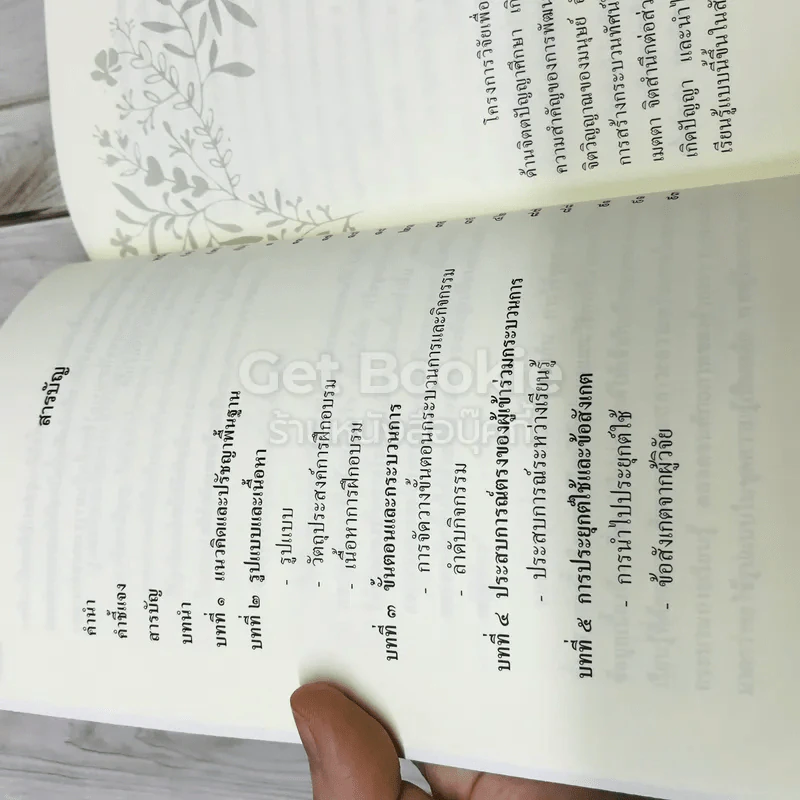 สารบัญ
คำนำ
คำชี้แจง
สารบัญ
บทนำ
บทที่ ๑ แนวคิดและปรัชญาพื้นฐาน
บทที่ ๒ รูปแบบและเนื้อหา
- รูปแบบ
- วัตถุประสงค์การฝึกอบรม
- เนื้อหาการฝึกอบรม
บทที่ ๓ ขั้นตอนและกระบวนการ
- การจัดวางขั้นตอนกระบวนการและกิจกรรม
- ลำดับกิจกรรม
บทที่ ๔ ประสบการณ์ตรงของผู้เข้าร่วมกระบวนการ
- ประสบการณ์ระหว่างเรียนรู้
บทที่ ๕ การประยุกต์ใช้และข้อสังเกต
- การนำไปประยุกต์ใช้
- ข้อสังเกตจากผู้วิจัย
โครงการวิจัยเพื่อ
ด้านจิตตปัญญาศึกษา
ความสำคัญของการพัฒน
จิตวิญญาณของมนุษย์
การสร้างกระบวนทัศน์
เมตตา จิตสำนึกต่อส่ว
เกิดปัญญา และนำไ
เรียนรู้แบบนี้ขึ้นในสั
Get Bookie
ร้านหนังสือบุ๊คกี้